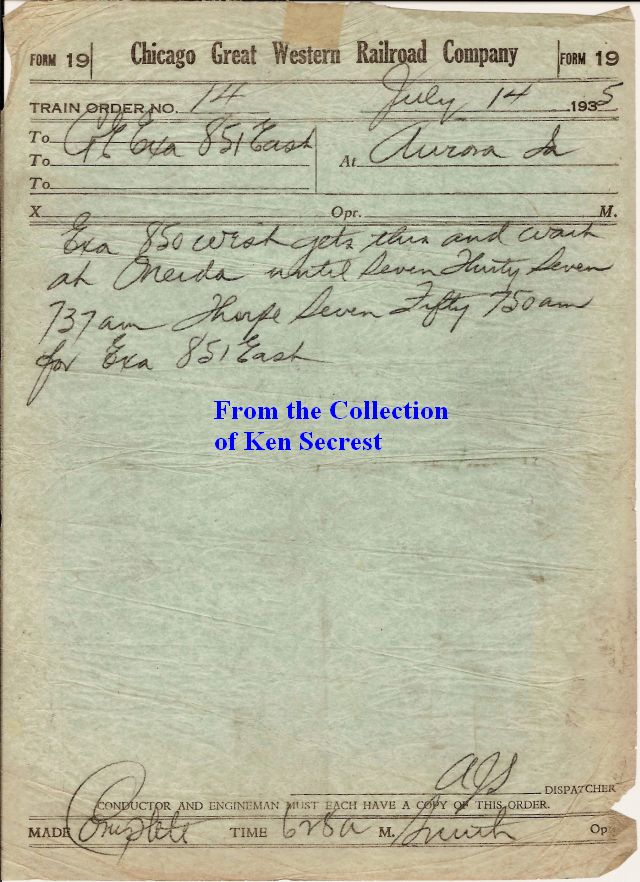 FORM 19 Chicago Great Western Railroad Company FORM 19
TRAIN ORDER NO. 14 July 14 1935
To C&E Exa 851 East
To At Aurora Ia
To
X Opr. M.
Exa 850 West gets this and wait
at Oneida until Seven Thirty Seven
737 am Thorpe Seven Fifty 750 am
for Exa 851 East
From the Collection
of Ken Secrest
AJS DISPATCHER
CONDUCTOR AND ENGINEMAN MUST EACH HAVE A COPY OF THIS ORDER.
MADE Complete TIME 628a M. Smith Op